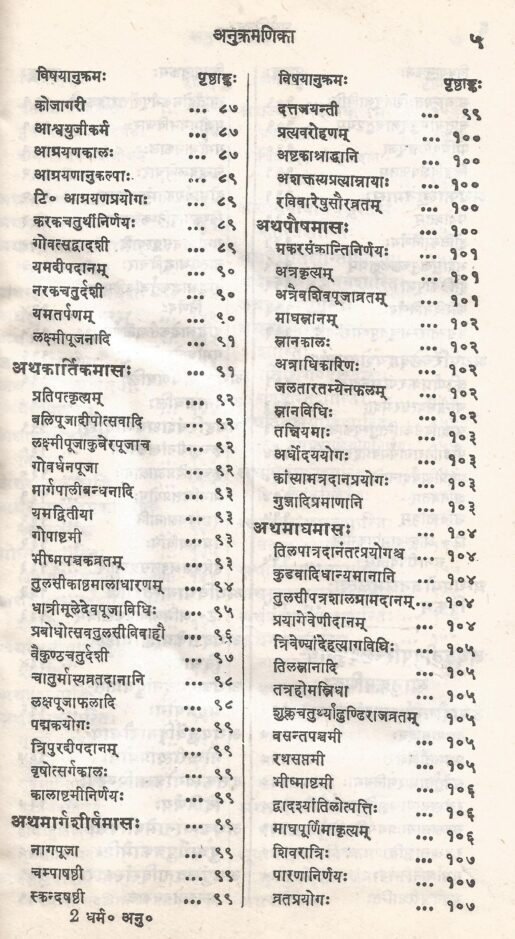 अनुक्रमणिका
५
विषयानुक्रमः पृष्ठाङ्कः
कोजागरी ... ८७
आश्वयुजीकर्म ... ८७
आग्रयणकालः ... ८७
आग्रयणानुकल्पाः ... ८९
टि० आग्रयणप्रयोगः ... ८९
करकचतुर्थीनिर्णयः ... ८९
गोवत्सद्वादशी ... ८९
यमदीपदानम् ... ९०
नरकचतुर्दशी ... ९०
यमतर्पणम् ... ९०
लक्ष्मीपूजनादि ... ९१
अथकार्तिकमासः ... ९१
प्रतिपत्कृत्यम् ... ९२
बलिपूजादीपोत्सवादि ... ९२
लक्ष्मीपूजाकुबेरपूजाच ... ९२
गोवर्धनपूजा ... ९२
मार्गपालीबन्धनादि ... ९३
यमद्वितीया ... ९३
गोपाष्टमी ... ९३
भीष्मपञ्चकव्रतम् ... ९३
तुलसीकाष्ठमालाधारणम् ... ९४
धात्रीमूलेदेवपूजाविधिः ... ९५
प्रबोधोत्सवतुलसीविवाहौ ... ९६
वैकुण्ठचतुर्दशी ... ९७
चातुर्मास्यव्रतदानानि ... ९८
लक्षपूजाफलादि ... ९८
पद्मकयोगः ... ९९
त्रिपुरदीपदानम् ... ९९
वृषोत्सर्गकालः ... ९९
कालाष्टमीनिर्णयः ... ९९
अथमार्गशीर्षमासः
नागपूजा ... ९९
चम्पाषष्ठी ... ९९
स्कन्दषष्ठी ... ९९
2 धर्म० अनु०
विषयानुक्रमः पृष्ठाङ्कः
दत्तजयन्ती ... ९९
प्रत्यवरोहणम् ... १००
अष्टकाश्राद्धानि ... १००
अशक्तस्यप्रत्याम्नायाः ... १००
रविवारेषुसौरव्रतम् ... १००
अथपौषमासः ... १००
मकरसंक्रान्तिनिर्णयः ... १०१
अत्रकृत्यम् ... १०१
अत्रैवशिवपूजाव्रतम् ... १०१
माघस्नानम् ... १०२
स्नानकालः ... १०२
अत्राधिकारिणः ... १०२
जलतारतम्येनफलम् ... १०२
स्नानविधिः ... १०२
तन्नियमाः ... १०३
अर्धोदययोगः ... १०३
कांस्यामत्रदानप्रयोगः ... १०३
गुञ्जादिप्रमाणानि ... १०३
अथमाघमासः ... १०४
तिलपात्रदानंतत्प्रयोगश्च ... १०४
कुडवादिधान्यमानानि ... १०४
तुलसीपत्रशालग्रामदानम् ... १०४
प्रयागेवेणीदानम् ... १०४
त्रिवेण्यांदेहत्यागविधिः ... १०५
तिलस्नानादि ... १०५
तत्रहोमस्त्रिधा ... १०५
शुक्लचतुर्थ्यांढुण्ढिराजव्रतम् ... १०५
वसन्तपञ्चमी ... १०५
रथसप्तमी ... १०५
भीष्माष्टमी ... १०६
द्वादश्यांतिलोत्पत्तिः ... १०६
माघपूर्णिमाकृत्यम् ... १०६
शिवरात्रिः ... १०७
पारणानिर्णयः ... १०७
व्रतप्रयोगः ... १०७